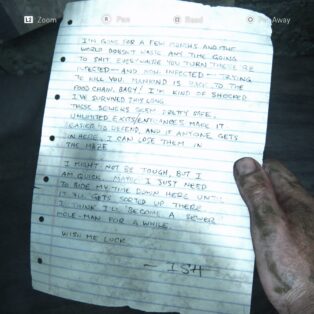 L2 Zoom R Pan Read Put Away
I'M GONE FOR A FEW MONTHS AND THE
WORLD DOESN'T WASTE ANY TIME GOING
TO SHIT. EVERYWHERE YOU TURN THERE'RE
INFECTED — AND NON INFECTED — TRYING
TO KILL YOU. MANKIND IS BACK TO THE
FOOD CHAIN, BABY! I'M KIND OF SHOCKED
I'VE SURVIVED THIS LONG.
THESE SEWERS SEEM PRETTY SAFE.
UNLIMITED EXITS/ENTRANCES MAKE IT
EASIER TO DEFEND, AND IF ANYONE GETS
IN HERE, I CAN LOSE THEM IN
THE MAZE.
I MIGHT NOT BE TOUGH, BUT I
AM QUICK. MAYBE I JUST NEED
TO BIDE MY TIME DOWN HERE UNTIL
IT ALL GETS SORTED UP THERE.
I THINK I'LL BECOME A SEWER
MOLE-MAN FOR A WHILE.
WISH ME LUCK
— ISH